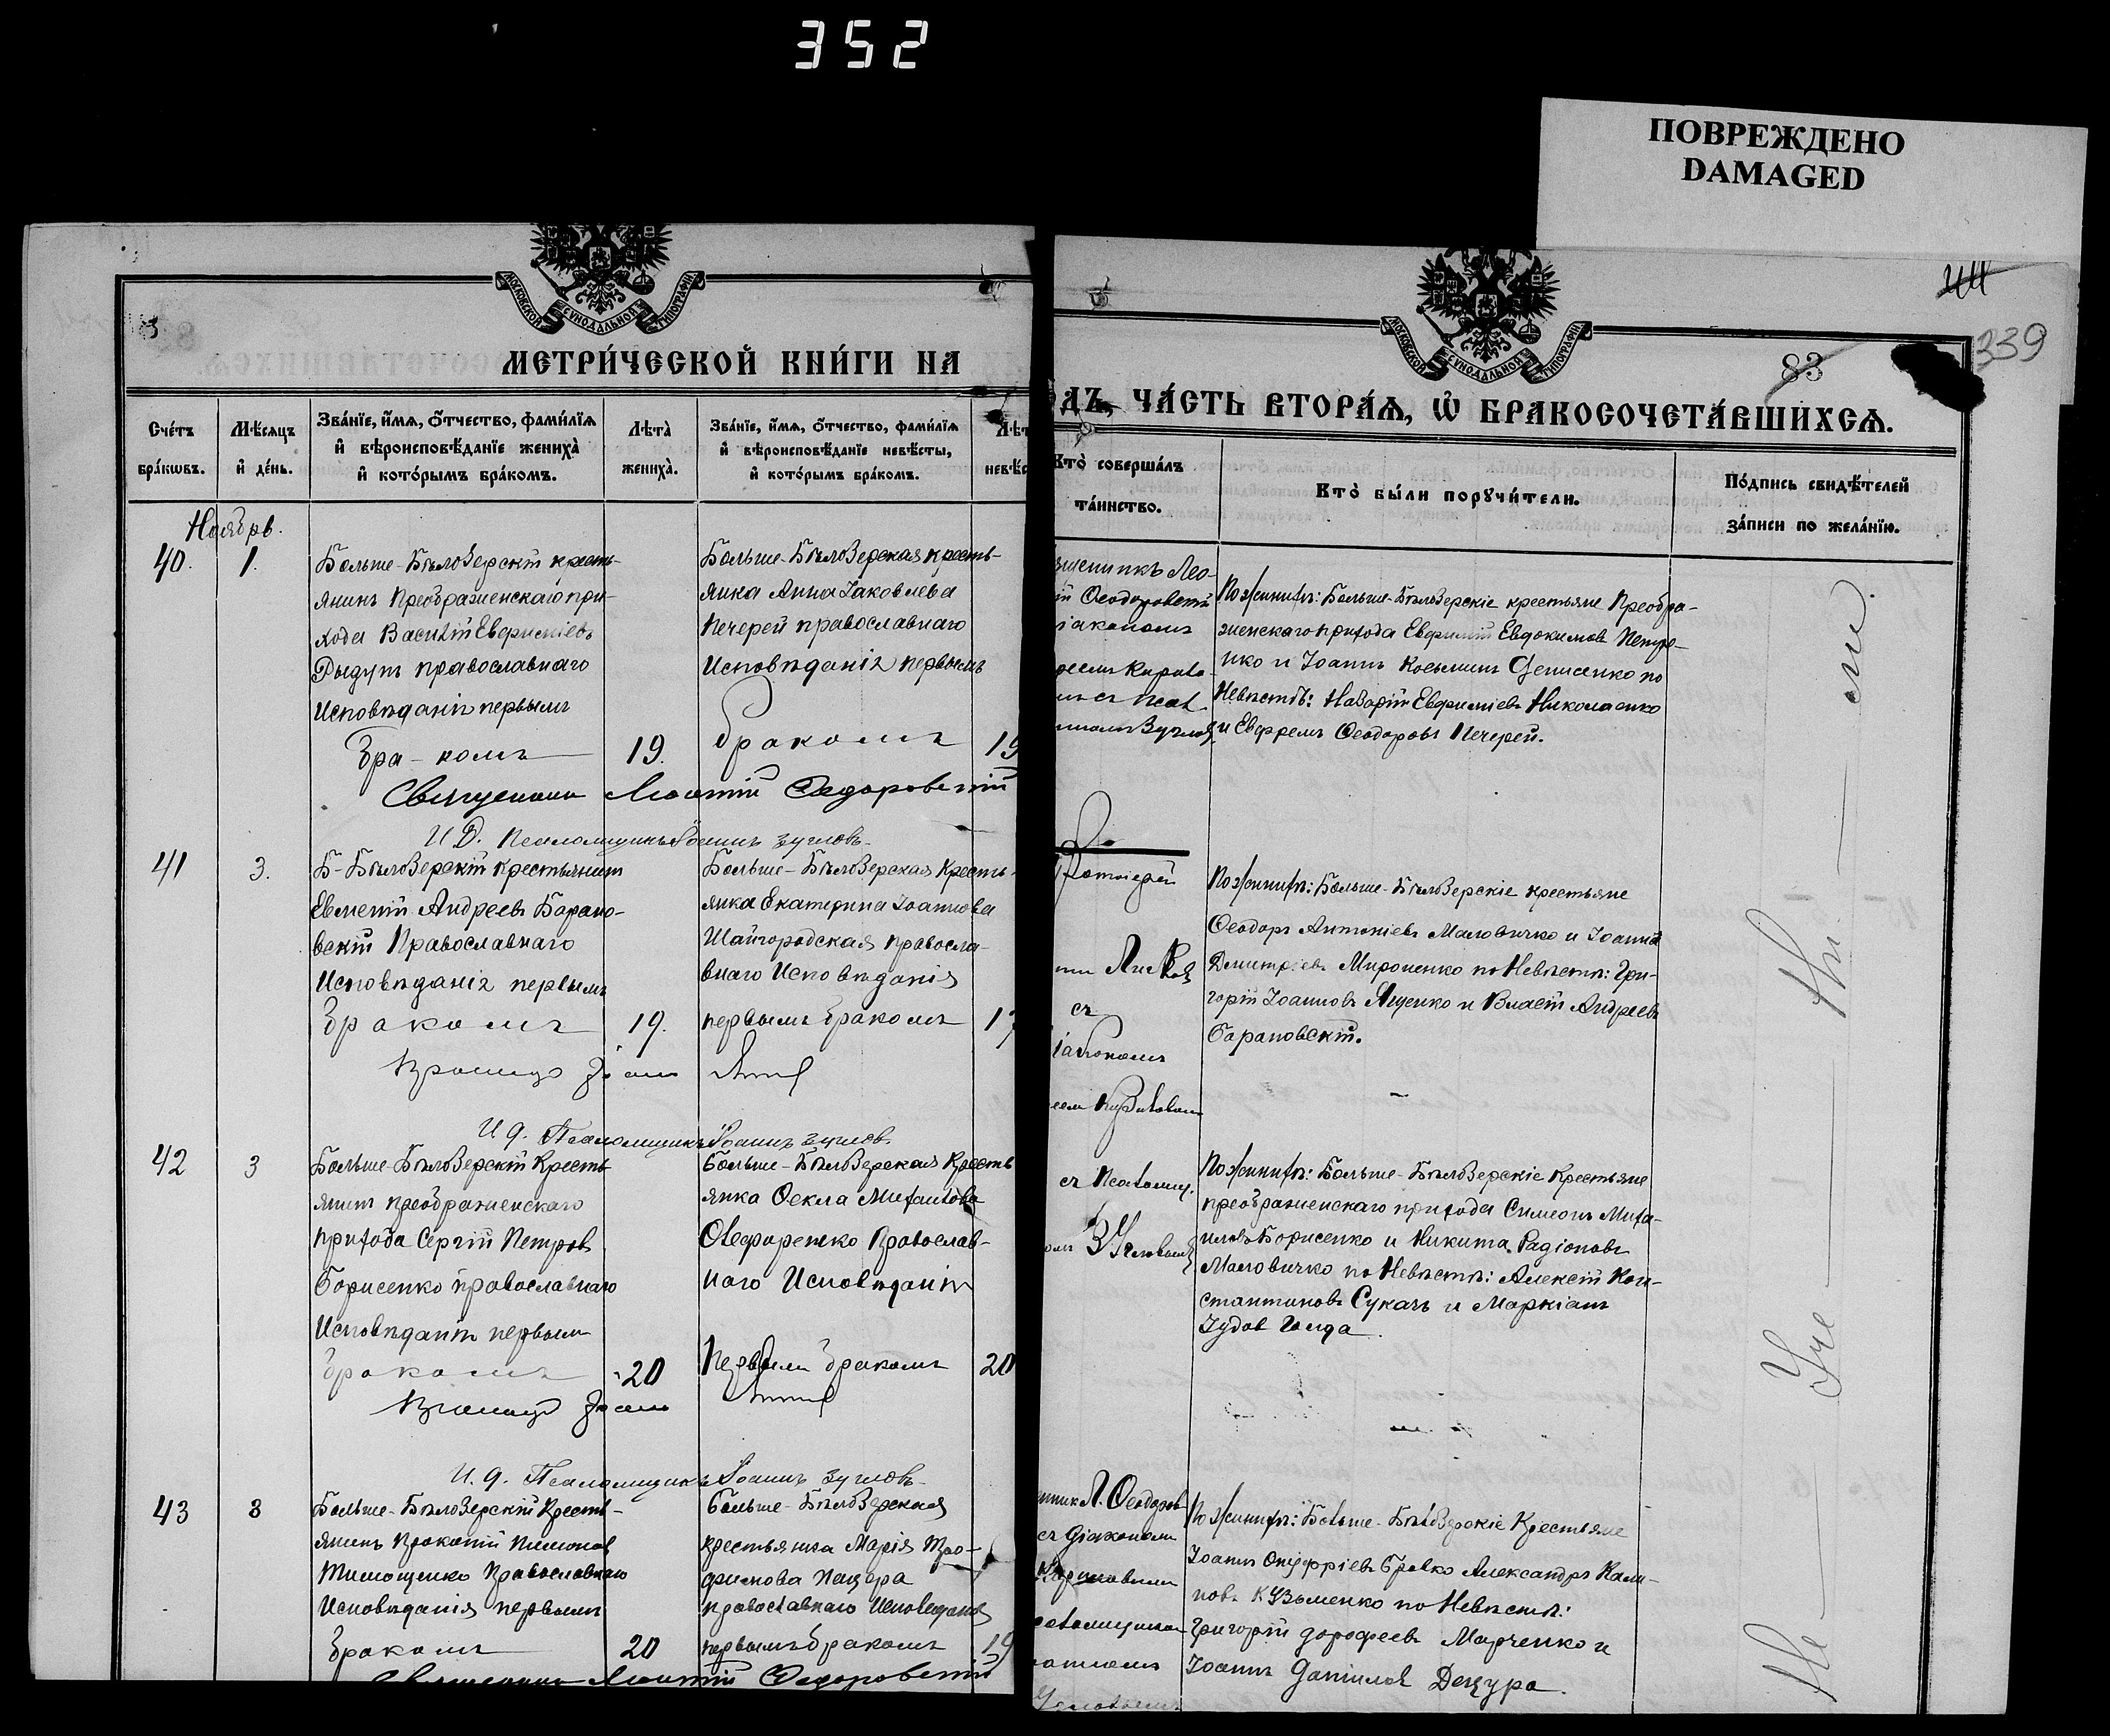 352
ПОВРЕЖДЕНО
DAMAGED
339
83
МОСКОВСКОЙ СУНОДАЛЬНОЙ ТИПОГРАФІИ
МОСКОВСКОЙ СУНОДАЛЬНОЙ ТИПОГРАФІИ
МЕТРИ́ЧЕСКОЙ КНИ́ГИ НА
ДЪ, ЧА́СТЬ ВТОРА́Ѧ, Ѽ БРАКОСОЧЕТА́ВШИХСѦ.
Сче́тъ
бра́кѡвъ.
Мѣ́сѧцъ
и҆ де́нь.
Зва́нїе, и҆́мѧ, ѻ҆́тчество, фами́лїѧ
и҆ вѣроисповѣ́данїе жениха̀
и҆ кото́рымъ бра́комъ.
Лѣта̀
жениха̀.
Зва́нїе, и҆́мѧ, ѻ҆́тчество, фами́лїѧ
и҆ вѣроисповѣ́данїе невѣ́сты,
и҆ кото́рымъ бра́комъ.
Лѣт
невѣ́с
Кто̀ соверша́лъ
та́инство.
Кто̀ бы́ли порꙋчи́тели.
По́дпись свидѣ́телей
за́писи по жела́нїю.
Ноябрь.
40.
1.
Больше-Бѣлозерскій кресть-
янинъ Преображенскаго при-
хода Василій Евфиміевъ
православнаго
Исповѣданія первымъ
бра-комъ
19.
Больше-Бѣлозерская кресть-
янка Анна Іаковлева
Печерей православнаго
Исповѣданія первымъ
бракомъ
19
щенникъ Лео-
ій Ѳеодоровскій
іакономъ
По Женихѣ: Больше-Бѣлозерскіе крестьяне Преобра-
женскаго прихода Евфимій Евдокимовъ Петре-
нко и Іоаннъ Косьминъ Денисенко по
Невѣстѣ: Назарій Евфиміевъ Николаенко
и Ефремъ Ѳеодоровъ Печерей.
Священникъ Леонтій Ѳедоровскій
И.Д. Псаломщикъ Іоаннъ Зуловъ
41
3.
Б-Бѣлозерскій крестьянинъ
Евменій Андреевъ Барано-
вскій Православнаго
Исповѣданія первымъ
бракомъ
19.
Больше-Бѣлозерская Кресть-
янка Екатерина Іоаннова
Шайгородская правосла-
внаго Исповѣданія
первымъ бракомъ
17
Протоіерей
съ
іакономъ
По Женихѣ: Больше-Бѣлозерскіе крестьяне
Ѳеодоръ Антоніевъ Маловичко и Іоаннъ
Димитріевъ Мироненко по Невѣстѣ: Гри-
горій Іоанновъ Яценко и Власій Андреевъ
Барановскій.
И.д. Псаломщикъ Іоаннъ
42
3
Больше-Бѣлозерскій Кресть-
янинъ преображенскаго
прихода Сергій Петровъ
Борисенко православнаго
Исповѣданія первымъ
бракомъ
20
Больше-Бѣлозерская Кресть
янка Ѳекла Михаилова
Православ-
наго Исповѣданія
Первымъ бракомъ
20
съ Псаломщ.
По Женихѣ: Больше-Бѣлозерскіе Крестьяне
преображенскаго прихода Симеонъ Миха-
иловъ Борисенко и Никита Радіоновъ
Маловичко по Невѣстѣ: Алексій Кон-
стантиновъ Сукачъ и Маркіанъ
Іудовъ
И.д. Псаломщикъ Іоаннъ
43
8
Больше-Бѣлозерскій Кресть-
янинъ Прокопій Пимоновъ
Тимощенко Православнаго
Исповѣданія первымъ
бракомъ
20
Больше-Бѣлозерская
крестьянка Марія Тро-
фимова Пацера
православнаго Исповѣданія
первымъ бракомъ
19
нникъ Л. Ѳеодоров
съ діакономъ
По Женихѣ: Больше-Бѣлозерскіе Крестьяне
Іоаннъ Онуфріевъ Бровко Александръ Кали-
новъ Кузьменко по Невѣстѣ:
Григорій Дорофеевъ Марченко и
Іоаннъ Даніиловъ Децура.
Священникъ Леонтій Ѳедоровскій